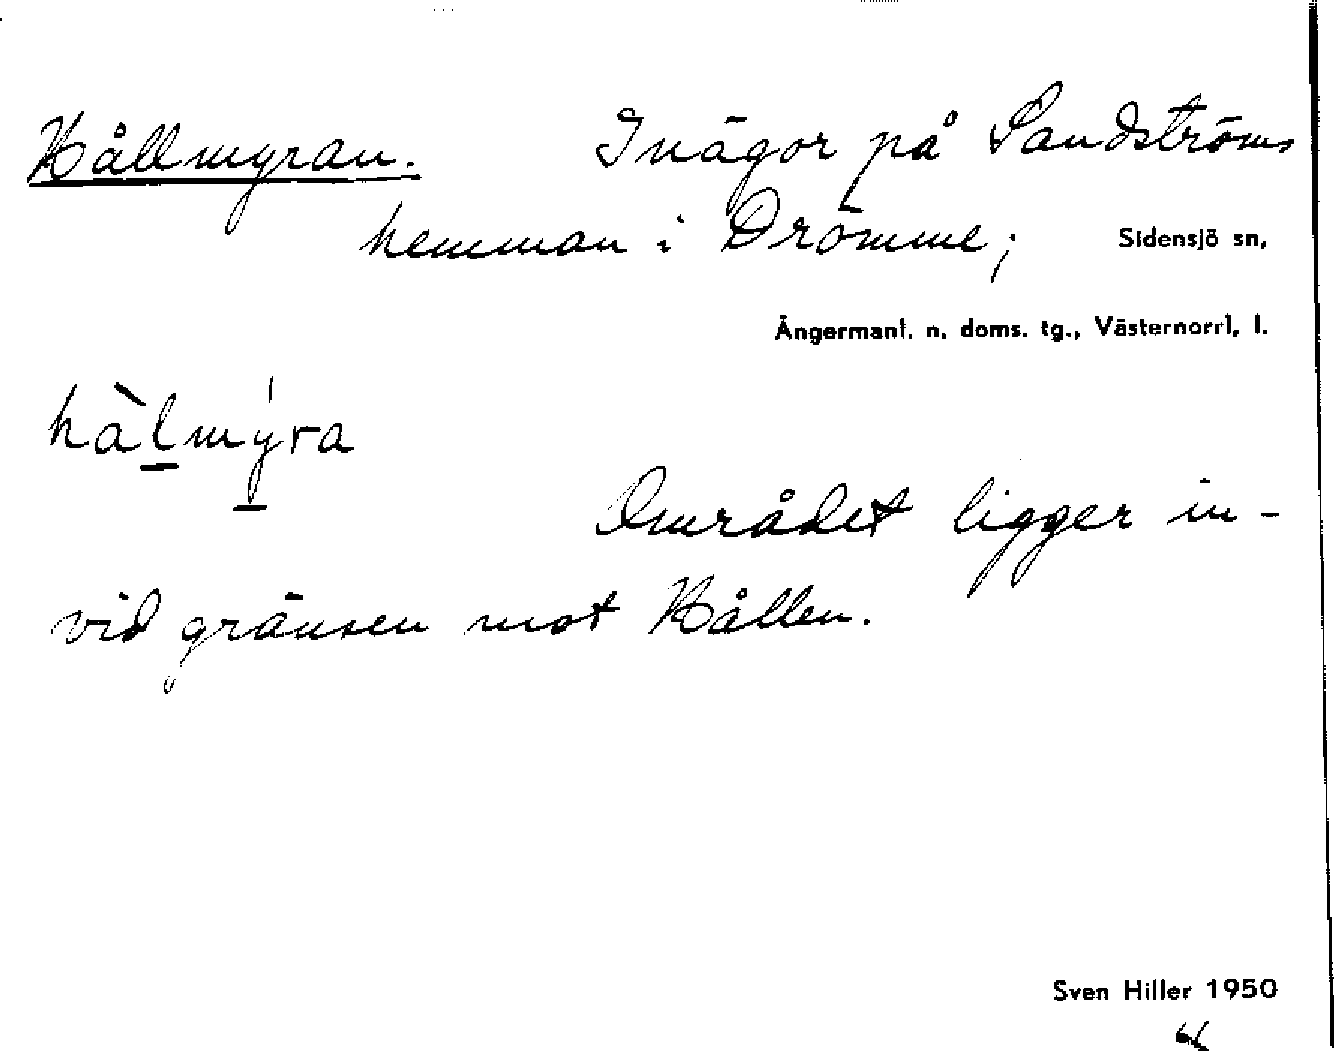 Hållmyran. Inägor på Sandströms
hemman i Drömme; Sidensjö sn,
Ångermanl. n. doms. tg., Västernorrl. l.
hålmyra
Området ligger in-
vid gränsen mot Hållen.
Sven Hiller 1950